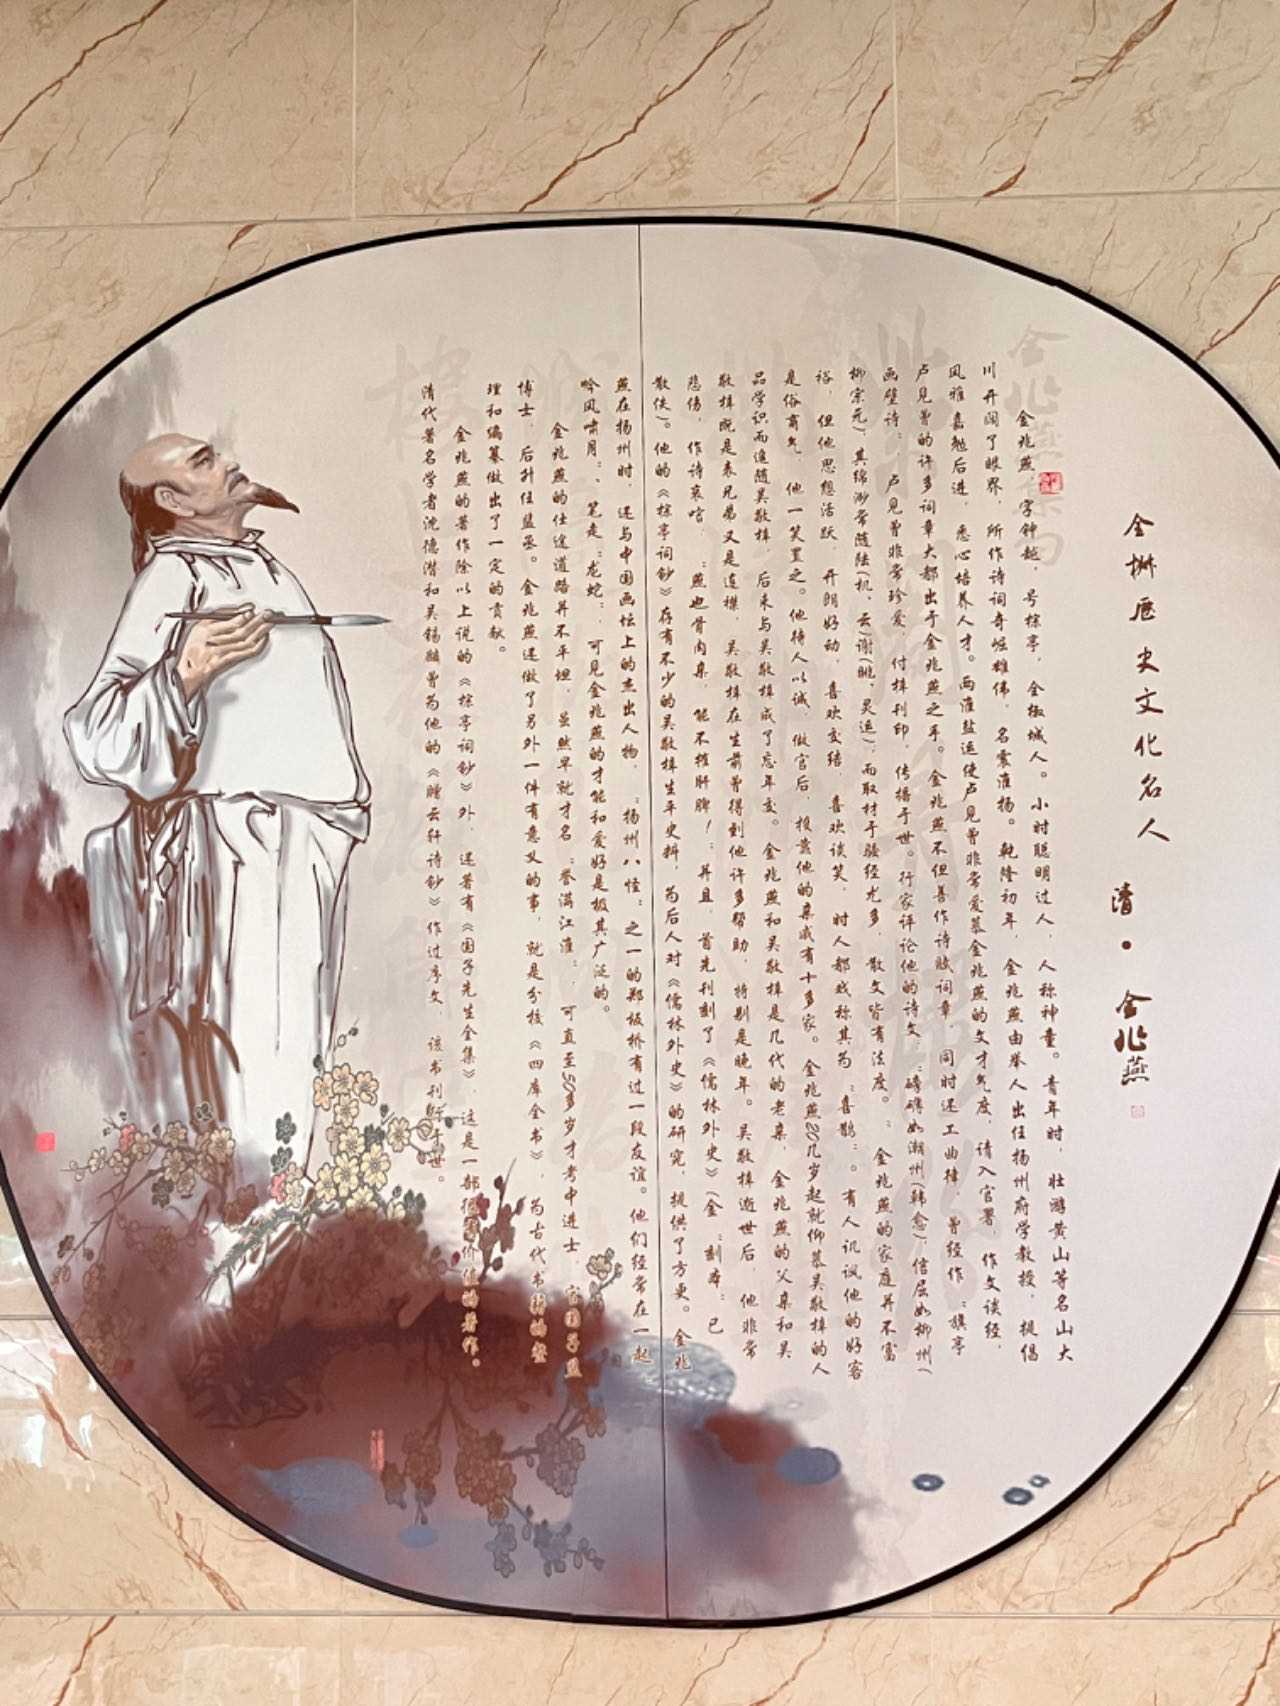 全椒历史文化名人
清·金兆燕
金兆燕，字钟越，号棕亭，全椒城人。小时聪明过人，人称神童。青年时，壮游黄山等名山大
川开阔了眼界，所作诗词奇崛雄伟，名震淮扬。乾隆初年，金兆燕由举人出任扬州府学教授，提倡
风雅嘉勉后进，悉心培养人才。两淮盐运使卢见曾非常爱慕金兆燕的文才气度，请入官署，作文谈经，
卢见曾的许多词章大都出于金兆燕之手。金兆燕不但善作诗赋词章，同时还工曲律，曾经作“旗亭
画壁诗”，卢见曾非常珍爱，付梓刊印，传播于世。行家评论他的诗文：“磅礴如潮州(韩愈)，佶屈如柳州(
柳宗元)，其绵渺常随陆(机、云)谢(眺、灵运)，而取材于骚经尤多，散文皆有法度。”金兆燕的家庭并不富
裕，但他思想活跃，开朗好动，喜欢交结，喜欢谈笑，时人都戏称其为“喜鹊”。有人讥讽他的好客
是俗商气，他一笑置之。他待人以诚，做官后，投靠他的亲戚有十多家。金兆燕20几岁起就仰慕吴敬梓的人
品学识而追随吴敬梓，后来与吴敬梓成了忘年交。金兆燕和吴敬梓是几代的老亲，金兆燕的父亲和吴
敬梓既是表兄弟又是连襟，吴敬梓在生前曾得到他许多帮助，特别是晚年。吴敬梓逝世后，他非常
悲伤，作诗哀唁，“燕也骨肉亲，能不摧肝脾！”并且，首先刊刻了《儒林外史》(金“刻本”已
散佚)。他的《棕亭词钞》存有不少的吴敬梓生平史料，为后人对《儒林外史》的研究，提供了方便。金兆
燕在扬州时，还与中国画坛上的杰出人物，“扬州八怪”之一的郑板桥有过一段友谊。他们经常在一起
吟风啸月”、笔走“龙蛇”，可见金兆燕的才能和爱好是极其广泛的。
金兆燕的仕途道路并不平坦，虽然早就才名“誉满江淮”，可直至50多岁才考中进士，官国子监
博士，后升任监丞。金兆燕还做了另外一件有意义的事，就是分校《四库全书》，为古代书籍的整
理和编纂做出了一定的贡献。
金兆燕的著作除以上说的《棕亭词钞》外，还著有《国子先生全集》，这是一部很有价值的著作。
清代著名学者沈德潜和吴锡麒曾为他的《赠云轩诗钞》作过序文，该书刊于世。